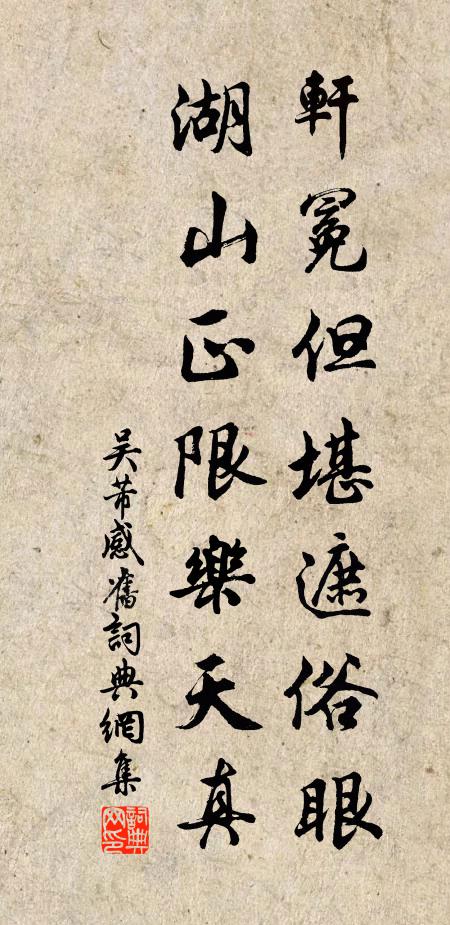 軒冕但堪遮俗眼
湖山正限樂天真
吴芾感舊詞典網集
詞典
网印